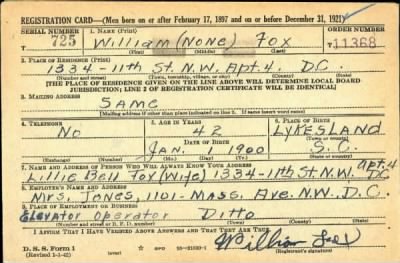 REGISTRATION CARD—(Men born on or after February 17, 1897 and on or before December 31, 1921)
SERIAL NUMBER 1. NAME (Print) ORDER NUMBER
725 William (None) Fox 11368
(First) (Middle) (Last)
2. PLACE OF RESIDENCE (Print)
1334-11th St. N.W. Apt. 4. D.C.
(Number and street) (Town, township, village, or city) (County) (State)
[THE PLACE OF RESIDENCE GIVEN ON THE LINE ABOVE WILL DETERMINE LOCAL BOARD
JURISDICTION; LINE 2 OF REGISTRATION CERTIFICATE WILL BE IDENTICAL]
3. MAILING ADDRESS
Same
[Mailing address if other than place indicated on line 2. If same insert word same]
4. TELEPHONE 5. AGE IN YEARS 6. PLACE OF BIRTH
No 42 Lykesland
DATE OF BIRTH
Jan. 1 1900 S.C.
7. NAME AND ADDRESS OF PERSON WHO WILL ALWAYS KNOW YOUR ADDRESS Apt. 4
Lillie Bell Fox (Wife) 1334-11th St. N.W. D.C.
8. EMPLOYER'S NAME AND ADDRESS
Mrs. Jones, 1101-Mass. Ave. N.W. D.C.
9. PLACE OF EMPLOYMENT OR BUSINESS
Elevator Operator Ditto
(Number and street or R. F. D. number) (Town) (County) (State)
I AFFIRM THAT I HAVE VERIFIED ABOVE ANSWERS AND THAT THEY ARE TRUE.
D. S. S. Form 1
(Revised 1-1-42) (over) William Fox